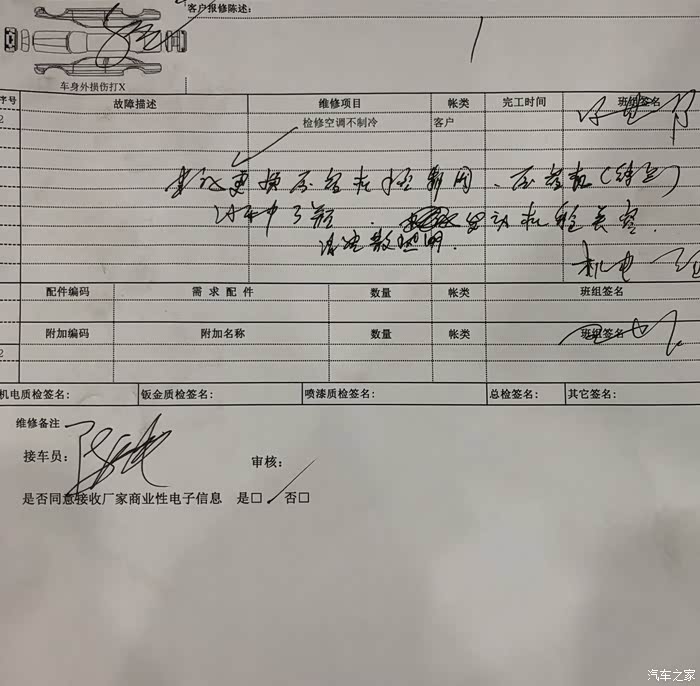 客户报修陈述:
车身外损伤打X
序号 故障描述 维修项目 帐类 完工时间 班组签名
2 检修空调不制冷 客户
建议更换压缩机控制阀、压缩机(
清洗散热网.
机电
配件编码 需求配件 数量 帐类 班组签名
附加编码 附加名称 数量 帐类 班组签名
2
机电质检签名: 钣金质检签名: 喷漆质检签名: 总检签名: 其它签名:
维修备注
接车员:
审核:
是否同意接收厂家商业性电子信息 是□ 否□
汽车之家